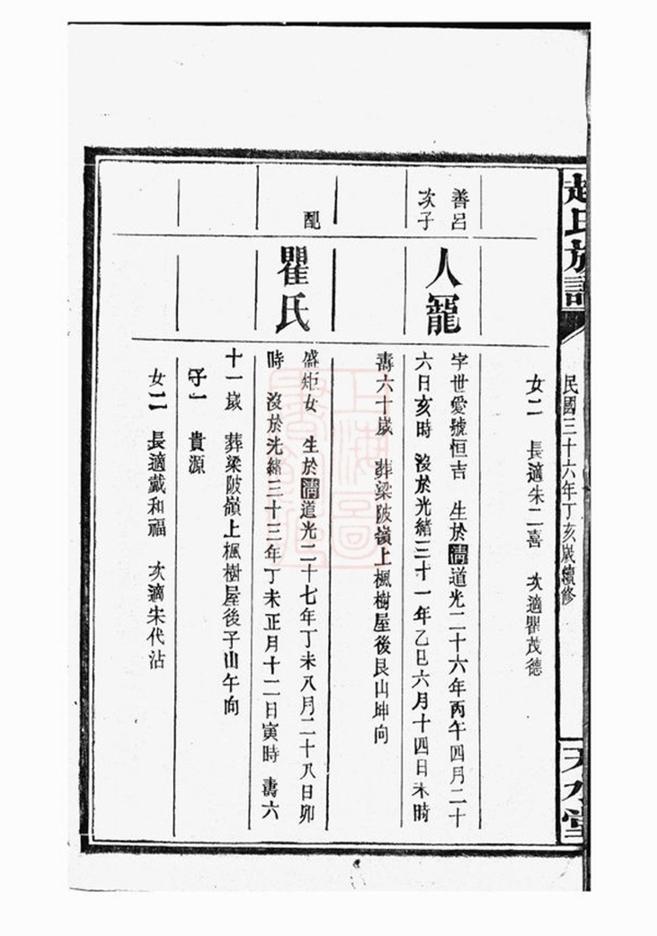 趙氏族譜
民國三十六年丁亥歲續修
天水堂
女二 長適朱二喜 次適瞿茂德
善呂
次子
人寵
字世愛號恒吉 生於清道光二十六年丙午四月二十
六日亥時 沒於光緒三十一年乙巳六月十四日未時
壽六十歲 葬梁陂嶺上楓樹屋後艮山坤向
配
瞿氏
盛炬女 生於清道光二十七年丁未八月二十八日卯
時 沒於光緒三十三年丁未正月十二日寅時 壽六
十一歲 葬梁陂嶺上楓樹屋後子山午向
子一 貴源
女二 長適戴和福 次適朱代沾
上海圖
書館藏